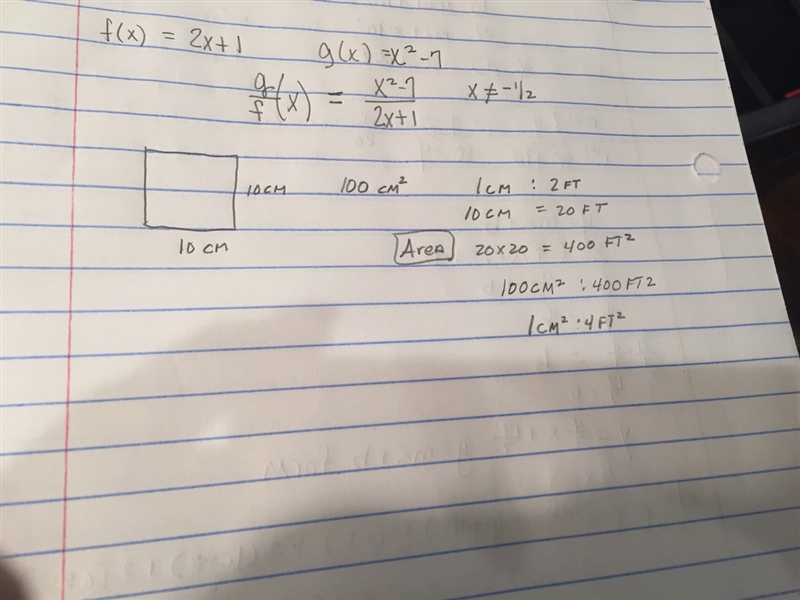 f(x) = 2x+1 g(x) = x²-7
g/f(x) = x²-7 / 2x+1 x ≠ -1/2
10cm 100 cm² 1cm : 2FT
10cm = 20 FT
10 cm Area 20x20 = 400 FT²
100cm² : 400FT²
1cm² : 4FT²
y = mx+b form